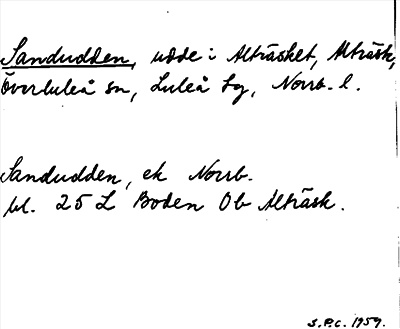 Sandudden, udde i Alträsket, Alträsk,
Överluleå sn, Luleå tg, Norrb. l.
Sandudden, ek Norrb.
bl. 25 L Boden Ob Alträsk.
S.P.C. 1959.